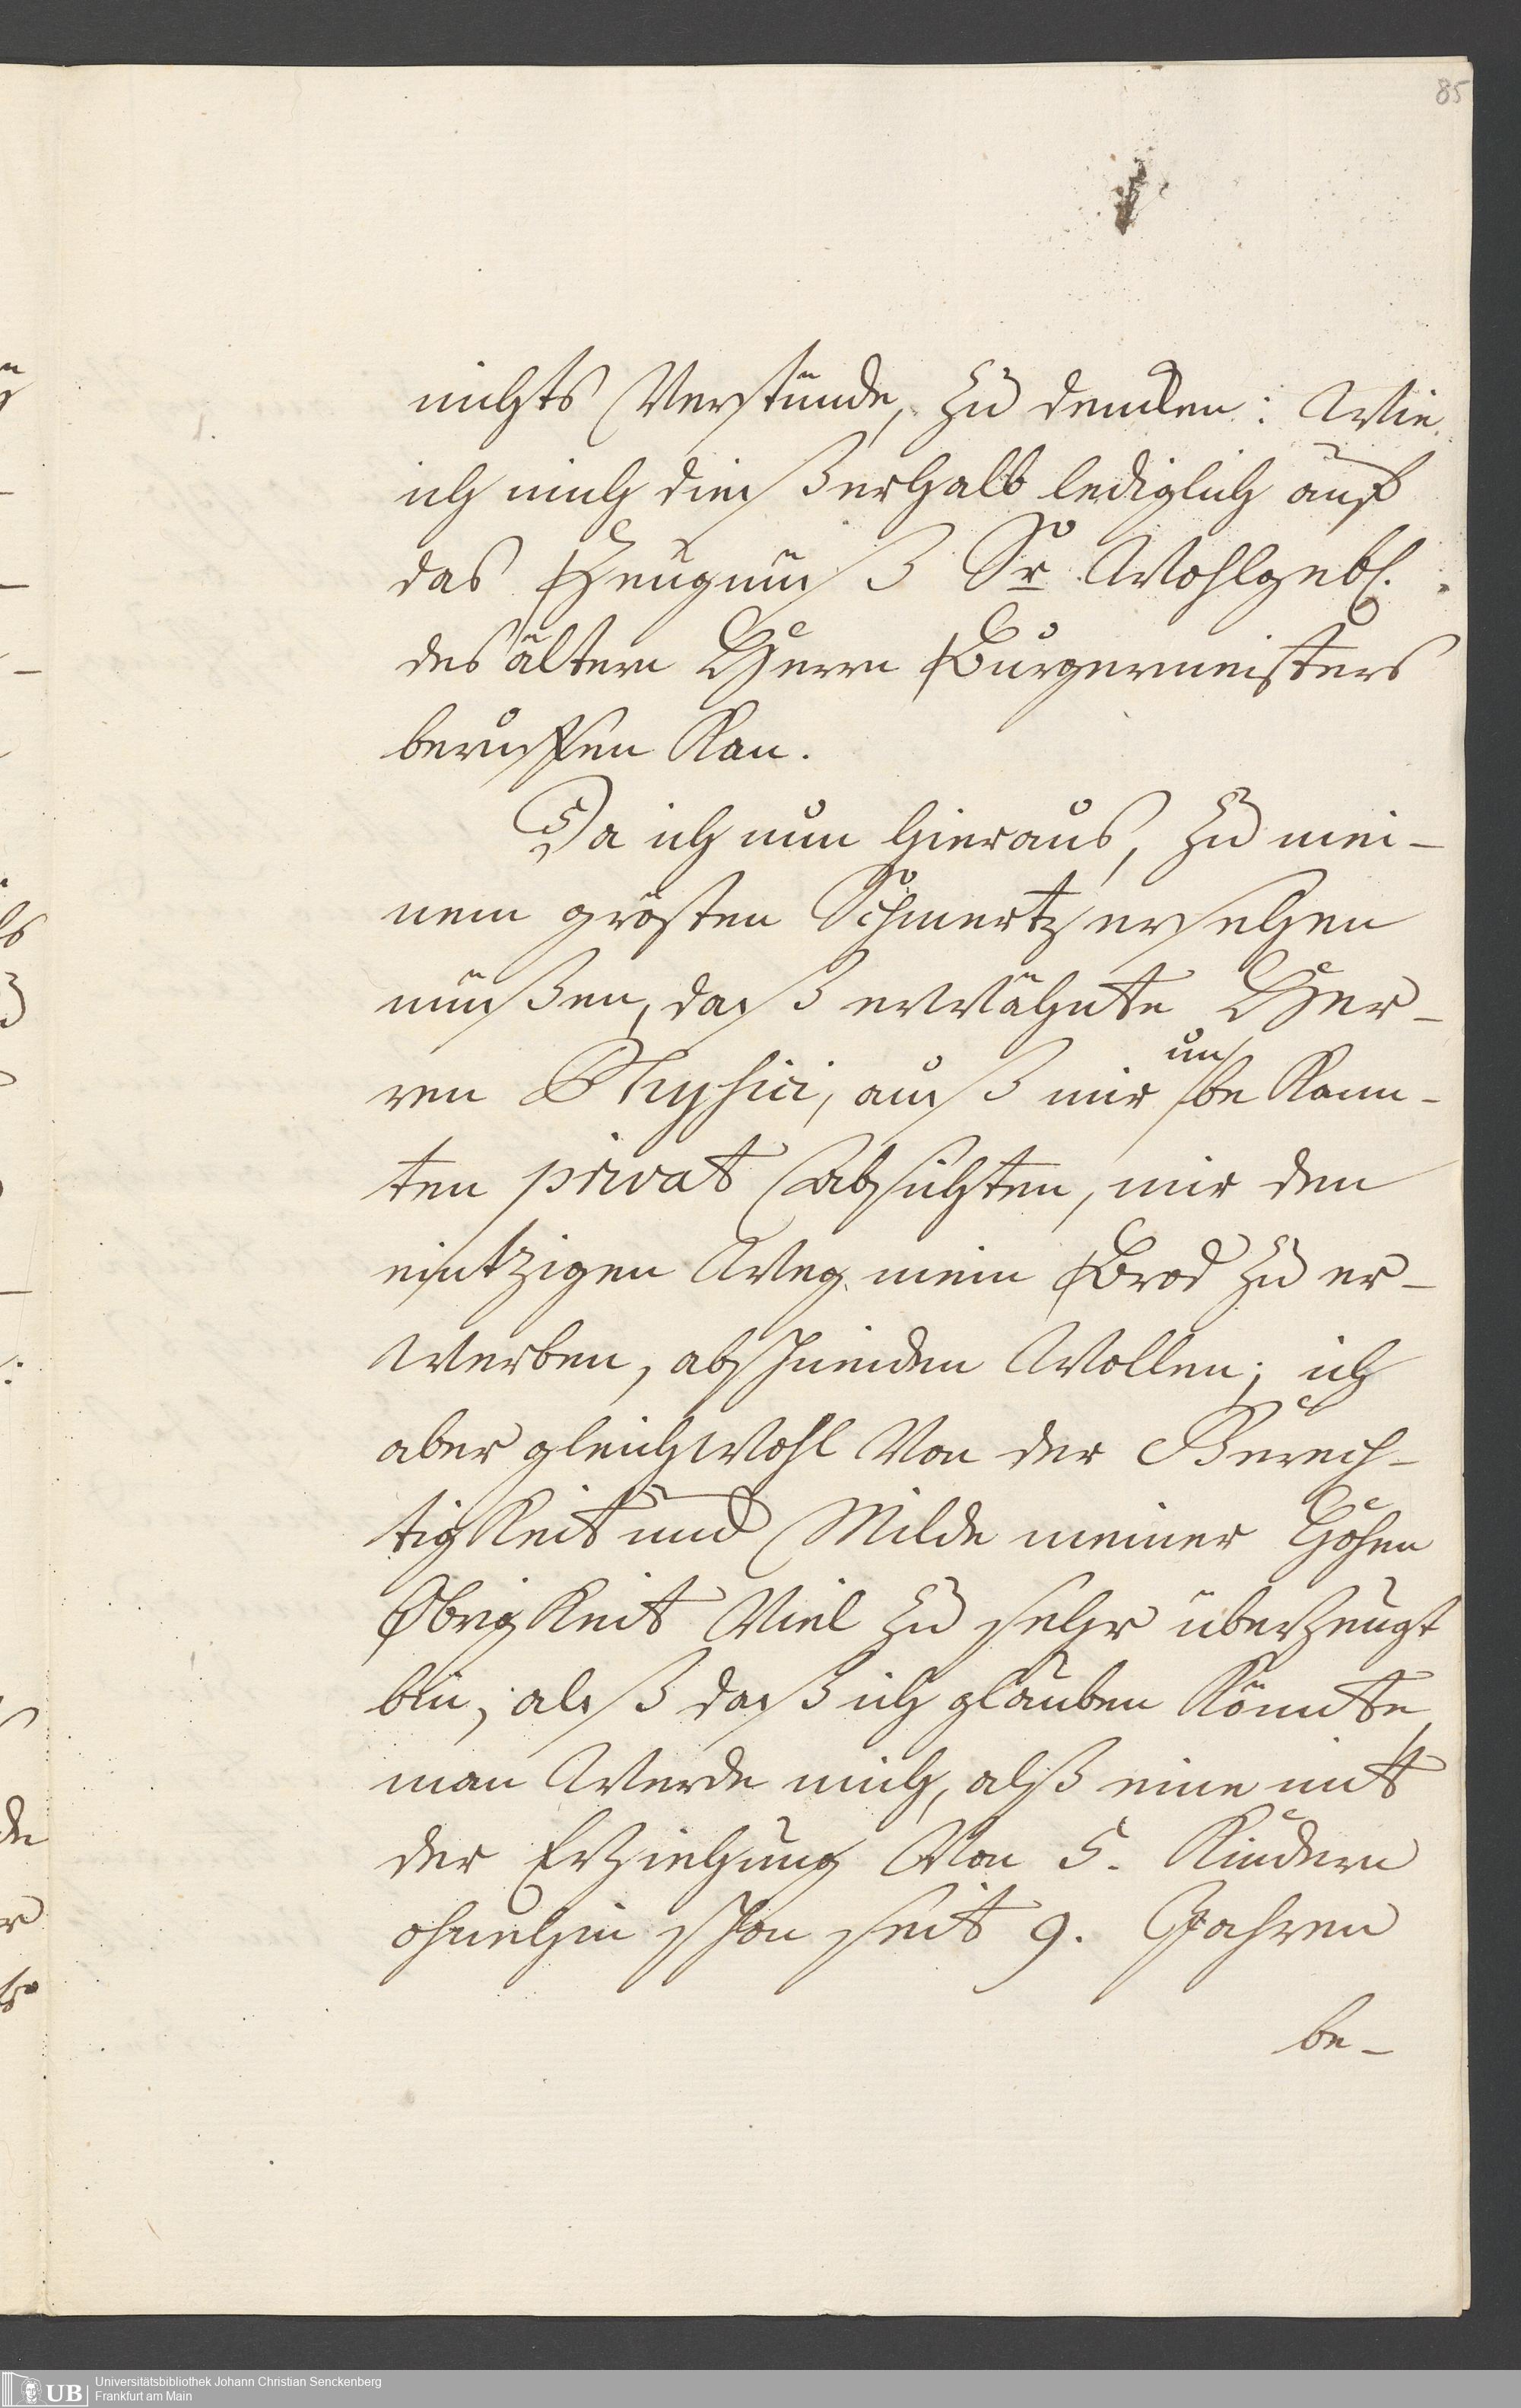 85
nichts Verstünde, zu dencken: Wie
ich mich dießerhalb lediglich auf
das Zeugnuß Sr Wohlgebl.
des ältern Herrn Burgermeisters
beruffen Kan.
Da ich nun hieraus, zu mei-
nem grösten Schmertz ersehen
müßen, daß erwähnte Her-
ren Physici, auß mir un be Kann-
ten privat Absichten, mir den
eintzigen Weg mein Brod zu er-
werben, abschneiden Wollen; ich
aber gleichwohl Von der Gerech-
tigkeit und Milde meiner Hohen
Obrigkeit Viel zu sehr überzeugt
bin, alß daß ich glauben Könnte,
man Werde mich, alß eine mit
der Erziehung Von 5. Kindern
ohnehin schon seit 9. Jahren
be-
UB
Universitätsbibliothek Johann Christian Senckenberg
Frankfurt am Main